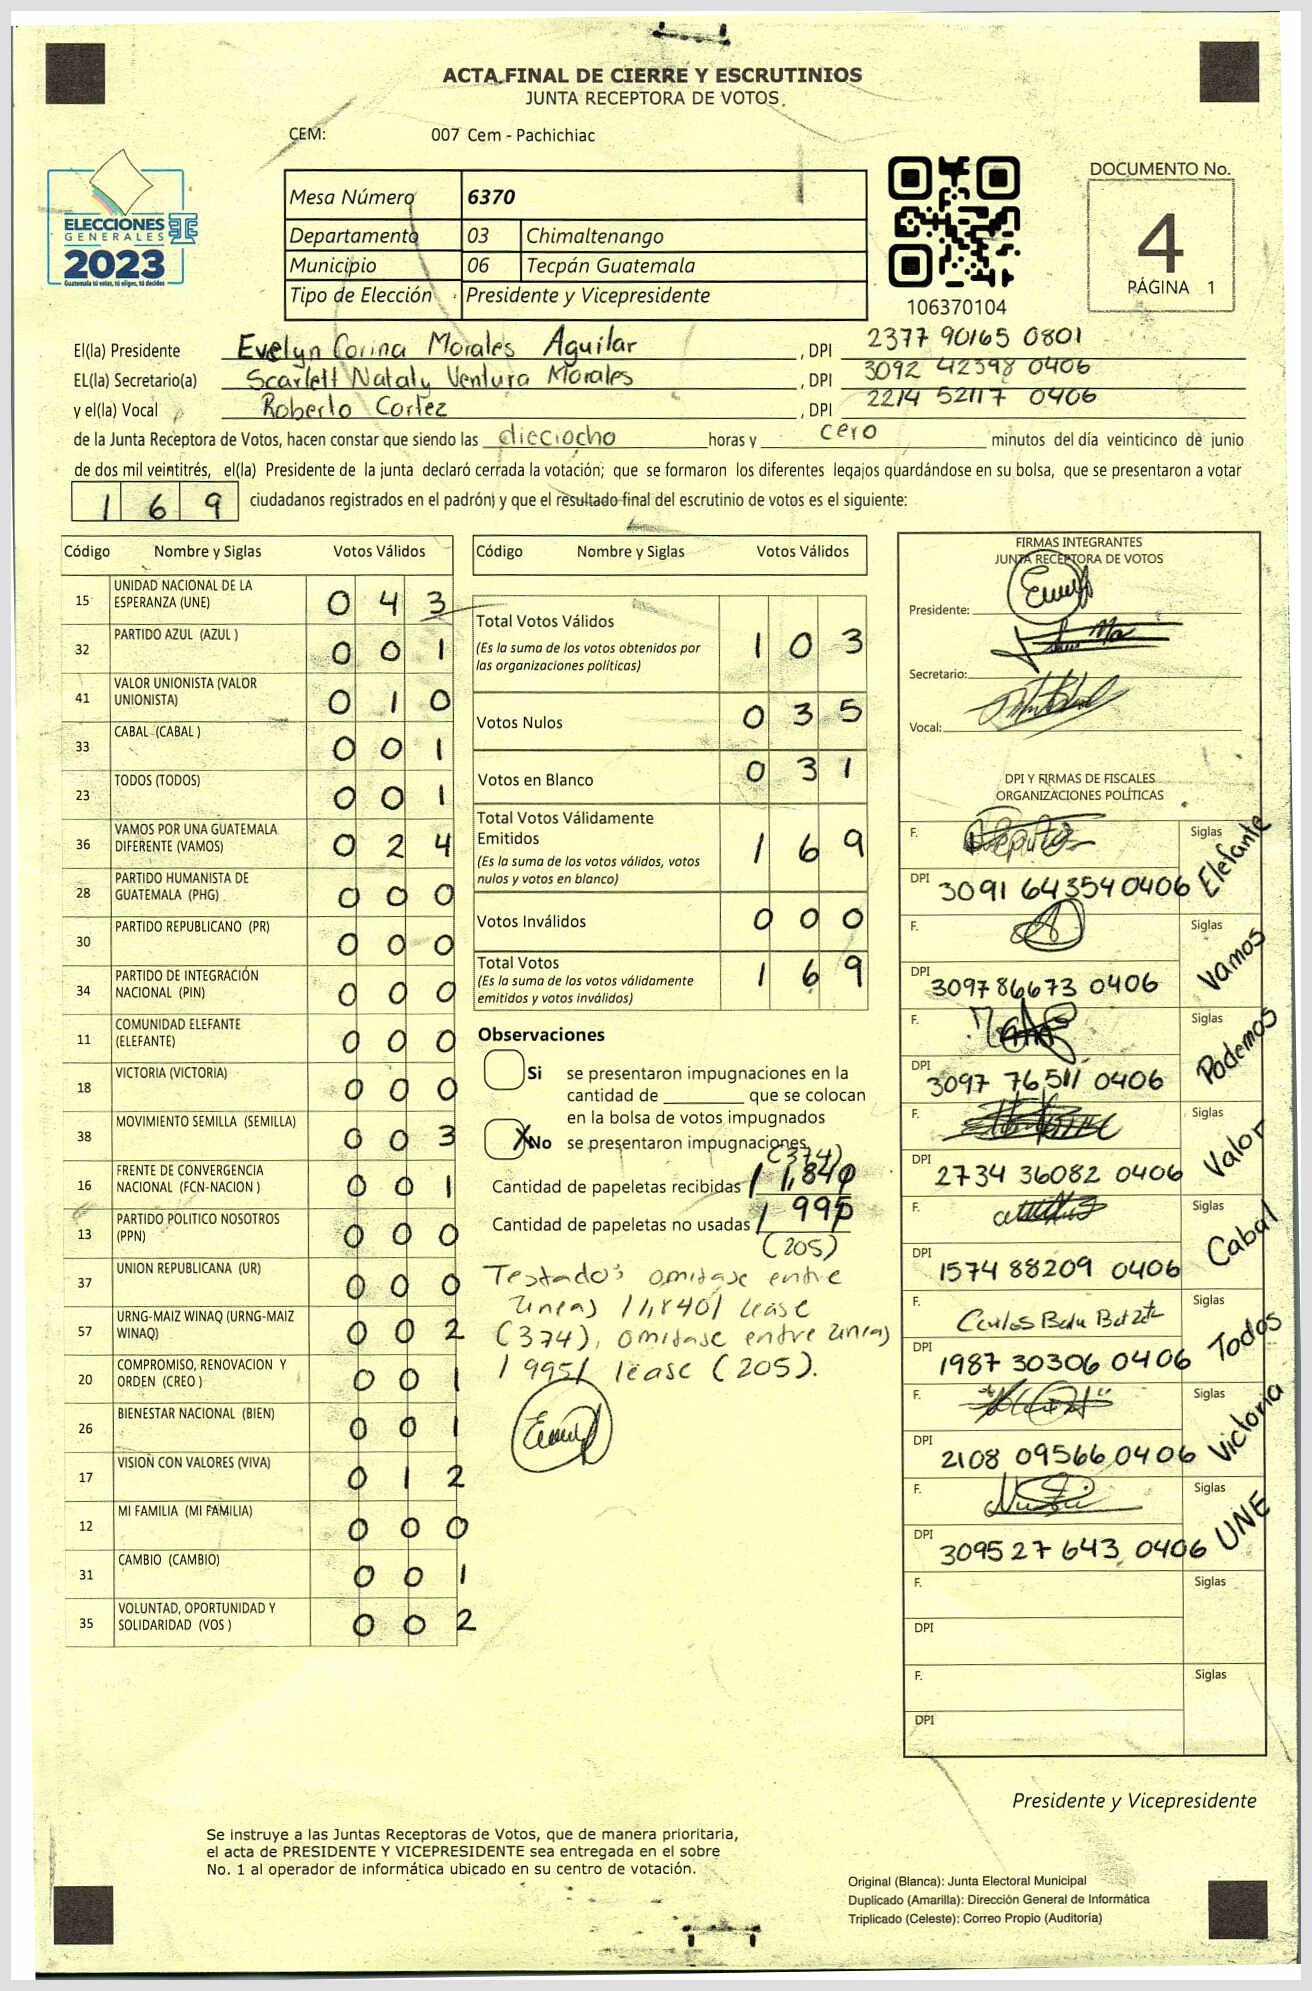 ACTA FINAL DE CIERRE Y ESCRUTINIOS
JUNTA RECEPTORA DE VOTOS.
CEM: 007 Cem - Pachichiac
ELECCIONES
GENERALES
2023
Guatemala tú votas, tú eliges, tú decides
Mesa Número 6370
Departamento 03 Chimaltenango
Municipio 06 Tecpán Guatemala
Tipo de Elección Presidente y Vicepresidente
106370104
DOCUMENTO No.
4
PÁGINA 1
El(la) Presidente Evelyn Corina Morales Aguilar , DPI 2377 90165 0801
EL(la) Secretario(a) Scarlett Nataly Ventura Morales , DPI 3092 42398 0406
y el(la) Vocal Roberto Cortez , DPI 2214 52117 0406
de la Junta Receptora de Votos, hacen constar que siendo las dieciocho horas y cero minutos del día veinticinco de junio
de dos mil veintitrés, el(la) Presidente de la junta declaró cerrada la votación; que se formaron los diferentes legajos guardándose en su bolsa, que se presentaron a votar
169 ciudadanos registrados en el padrón; y que el resultado final del escrutinio de votos es el siguiente:
Código Nombre y Siglas Votos Válidos
15 UNIDAD NACIONAL DE LA
ESPERANZA (UNE) 0 4 3
32 PARTIDO AZUL (AZUL ) 0 0 1
41 VALOR UNIONISTA (VALOR
UNIONISTA) 0 1 0
33 CABAL (CABAL ) 0 0 1
23 TODOS (TODOS) 0 0 1
36 VAMOS POR UNA GUATEMALA
DIFERENTE (VAMOS) 0 2 4
28 PARTIDO HUMANISTA DE
GUATEMALA (PHG) 0 0 0
30 PARTIDO REPUBLICANO (PR) 0 0 0
34 PARTIDO DE INTEGRACIÓN
NACIONAL (PIN) 0 0 0
11 COMUNIDAD ELEFANTE
(ELEFANTE) 0 0 0
18 VICTORIA (VICTORIA) 0 0 0
38 MOVIMIENTO SEMILLA (SEMILLA) 0 0 3
16 FRENTE DE CONVERGENCIA
NACIONAL (FCN-NACION ) 0 0 1
13 PARTIDO POLITICO NOSOTROS
(PPN) 0 0 0
37 UNION REPUBLICANA (UR) 0 0 0
57 URNG-MAIZ WINAQ (URNG-MAIZ
WINAQ) 0 0 2
20 COMPROMISO, RENOVACION Y
ORDEN (CREO ) 0 0 1
26 BIENESTAR NACIONAL (BIEN) 0 0 1
17 VISION CON VALORES (VIVA) 0 1 2
12 MI FAMILIA (MI FAMILIA) 0 0 0
31 CAMBIO (CAMBIO) 0 0 1
35 VOLUNTAD, OPORTUNIDAD Y
SOLIDARIDAD (VOS ) 0 0 2
Código Nombre y Siglas Votos Válidos
Total Votos Válidos 1 0 3
(Es la suma de los votos obtenidos por
las organizaciones políticas)
Votos Nulos 0 3 5
Votos en Blanco 0 3 1
Total Votos Válidamente
Emitidos 1 6 9
(Es la suma de los votos válidos, votos
nulos y votos en blanco)
Votos Inválidos 0 0 0
Total Votos 1 6 9
(Es la suma de los votos válidamente
emitidos y votos inválidos)
Observaciones
Si se presentaron impugnaciones en la
cantidad de ________ que se colocan
en la bolsa de votos impugnados
X No se presentaron impugnaciones
(374)
Cantidad de papeletas recibidas / 1,840
Cantidad de papeletas no usadas / 995
(205)
Testados: omitase entre
lineas /1,840/ lease
(374), omitase entre lineas
/995/ lease (205).
FIRMAS INTEGRANTES
JUNTA RECEPTORA DE VOTOS
Presidente:
Secretario:
Vocal:
DPI Y FIRMAS DE FISCALES
ORGANIZACIONES POLÍTICAS
F. Siglas Elefante
DPI 3091 64354 0406
F. Siglas Vamos
DPI 3097 86673 0406
F. Siglas Podemos
DPI 3097 76511 0406
F. Siglas Valor
DPI 2734 36082 0406
F. Siglas Cabal
DPI 1574 88209 0406
F. Siglas Todos
DPI 1987 30306 0406
F. Siglas Victoria
DPI 2108 09566 0406
F. Siglas UNE
DPI 3095 27 643 0406
F. Siglas
DPI
F. Siglas
DPI
Presidente y Vicepresidente
Se instruye a las Juntas Receptoras de Votos, que de manera prioritaria,
el acta de PRESIDENTE Y VICEPRESIDENTE sea entregada en el sobre
No. 1 al operador de informática ubicado en su centro de votación.
Original (Blanca): Junta Electoral Municipal
Duplicado (Amarilla): Dirección General de Informática
Triplicado (Celeste): Correo Propio (Auditoría)